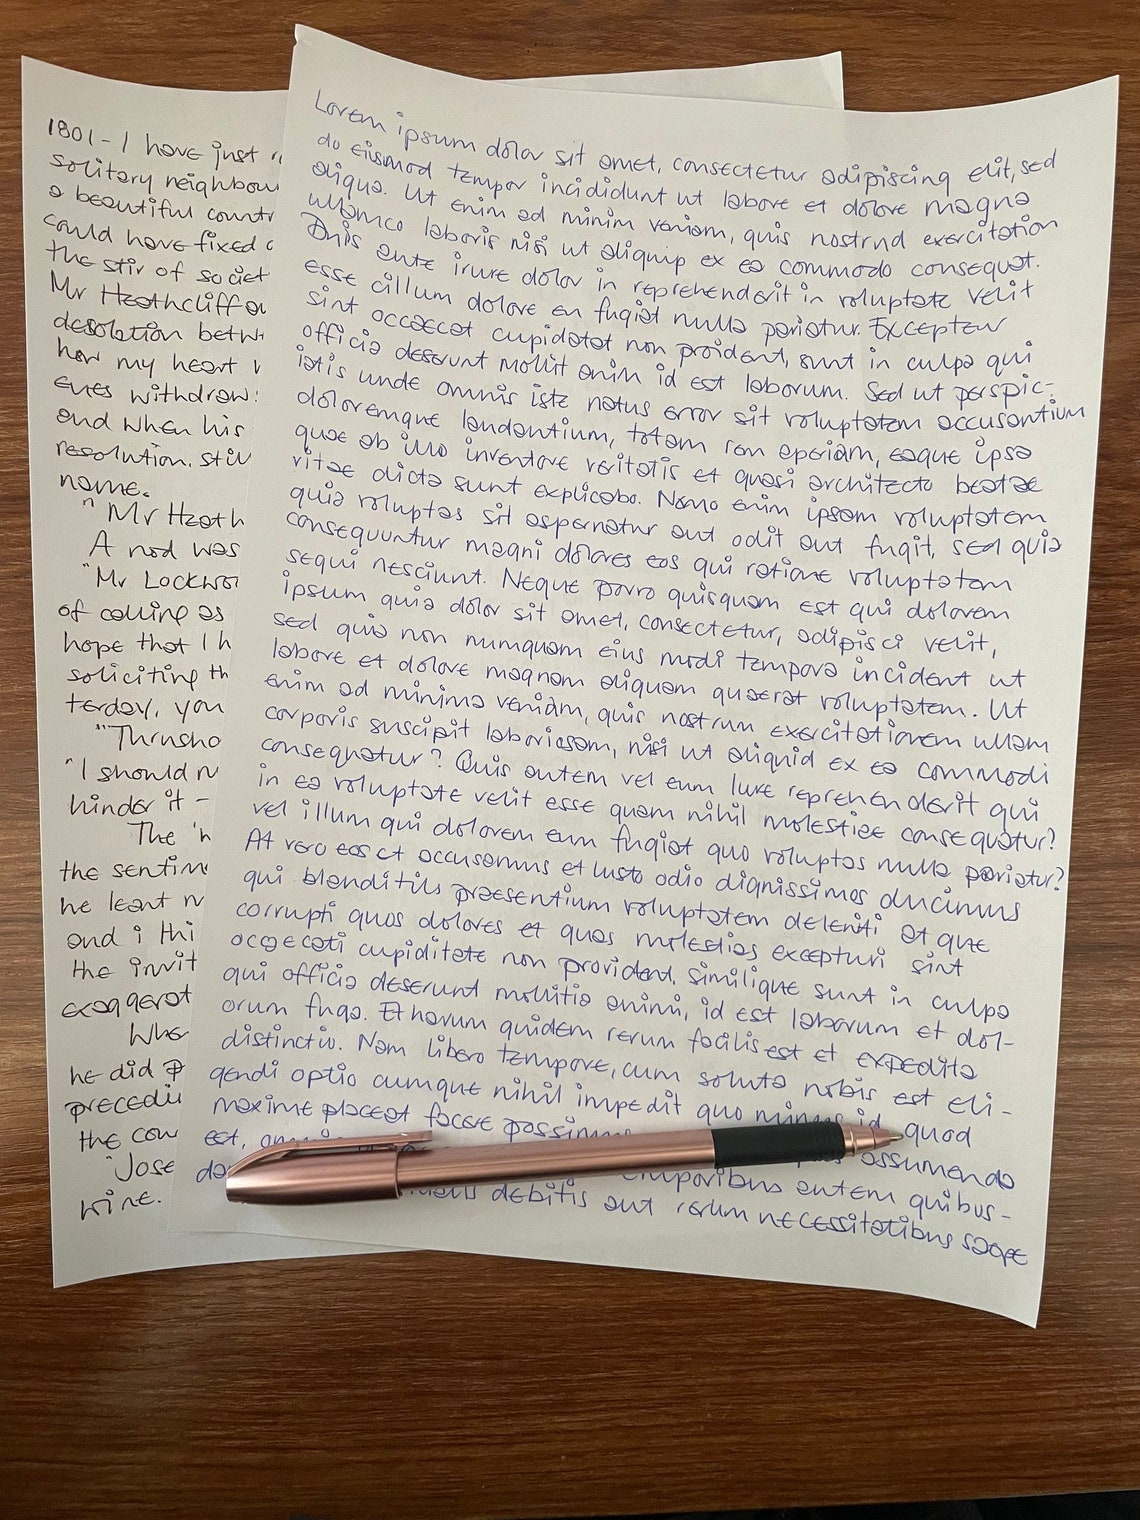 1801 - I have just
solitary neighbou
a beautiful countr
could have fixed
the stir of societ
Mr Heathcliff a
desolation betw
how my heart
eyes withdraw
and when his
resolution, stil
name.
" Mr Heath
A nod was
"Mr Lockwo
of calling as
hope that I h
soliciting th
terday, you
"Thrusho
"I should n
hinder it -
The 'n
the sentim
he leant
and i thi
the invit
exaggerat
When
he did
precedi
the con
"Jose
wine.
Lorem ipsum dolor sit amet, consectetur adipiscing elit, sed
do eiusmod tempor incididunt ut labore et dolore magna
aliqua. Ut enim ad minim veniam, quis nostrud exercitation
ullamco laboris nisi ut aliquip ex ea commodo consequat.
Duis aute irure dolor in reprehenderit in voluptate velit
esse cillum dolore eu fugiat nulla pariatur. Excepteur
sint occaecat cupidatat non proident, sunt in culpa qui
officia deserunt mollit anim id est laborum. Sed ut perspic-
iatis unde omnis iste natus error sit voluptatem accusantium
doloremque laudantium, totam rem aperiam, eaque ipsa
quae ab illo inventore veritatis et quasi architecto beatae
vitae dicta sunt explicabo. Nemo enim ipsam voluptatem
quia voluptas sit aspernatur aut odit aut fugit, sed quia
consequuntur magni dolores eos qui ratione voluptatem
sequi nesciunt. Neque porro quisquam est qui dolorem
ipsum quia dolor sit amet, consectetur, adipisci velit,
sed quia non numquam eius modi tempora incident ut
labore et dolore magnam aliquam quaerat voluptatem. Ut
enim ad minima veniam, quis nostrum exercitationem ullam
corporis suscipit laboriosam, nisi ut aliquid ex ea commodi
consequatur? Quis autem vel eum iure reprehenderit qui
in ea voluptate velit esse quam nihil molestiae consequatur?
vel illum qui dolorem eum fugiat quo voluptas nulla pariatur?
At vero eos et accusamus et iusto odio dignissimos ducimus
qui blanditiis praesentium voluptatem deleniti at que
corrupti quos dolores et quas molestias excepturi sint
occaecati cupiditate non provident, similique sunt in culpa
qui officia deserunt mollitia animi, id est laborum et dol-
orum fuga. Et harum quidem rerum facilis est et expedita
distinctio. Nam libero tempore, cum soluta nobis est eli-
gendi optio cumque nihil impedit quo minus id quod
maxime placeat facere possimus
est, assumenda
autem quibus-
debitis aut rerum necessitatibus saepe